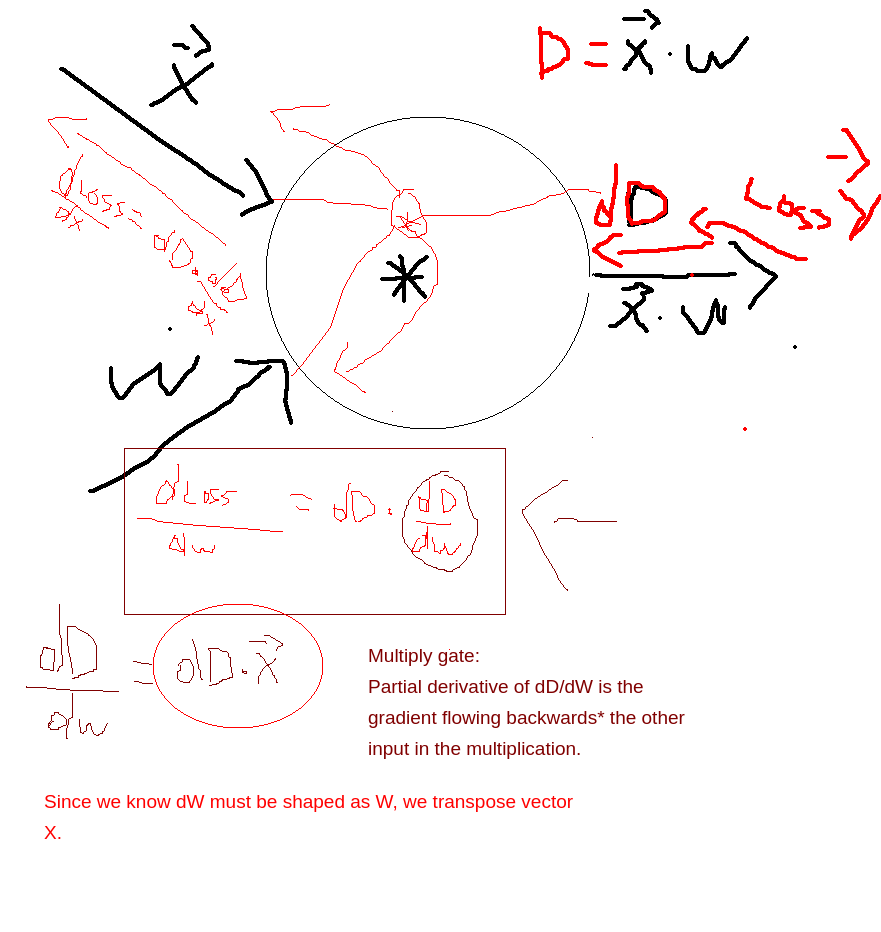 D = x · w
x
dLoss = dD · dD
dx dx
dD Loss y
*
*
x · w
w
dLoss = dD · dD
dw dw
dD = dD · x
dw
Multiply gate:
Partial derivative of dD/dW is the
gradient flowing backwards* the other
input in the multiplication.
Since we know dW must be shaped as W, we transpose vector
X.